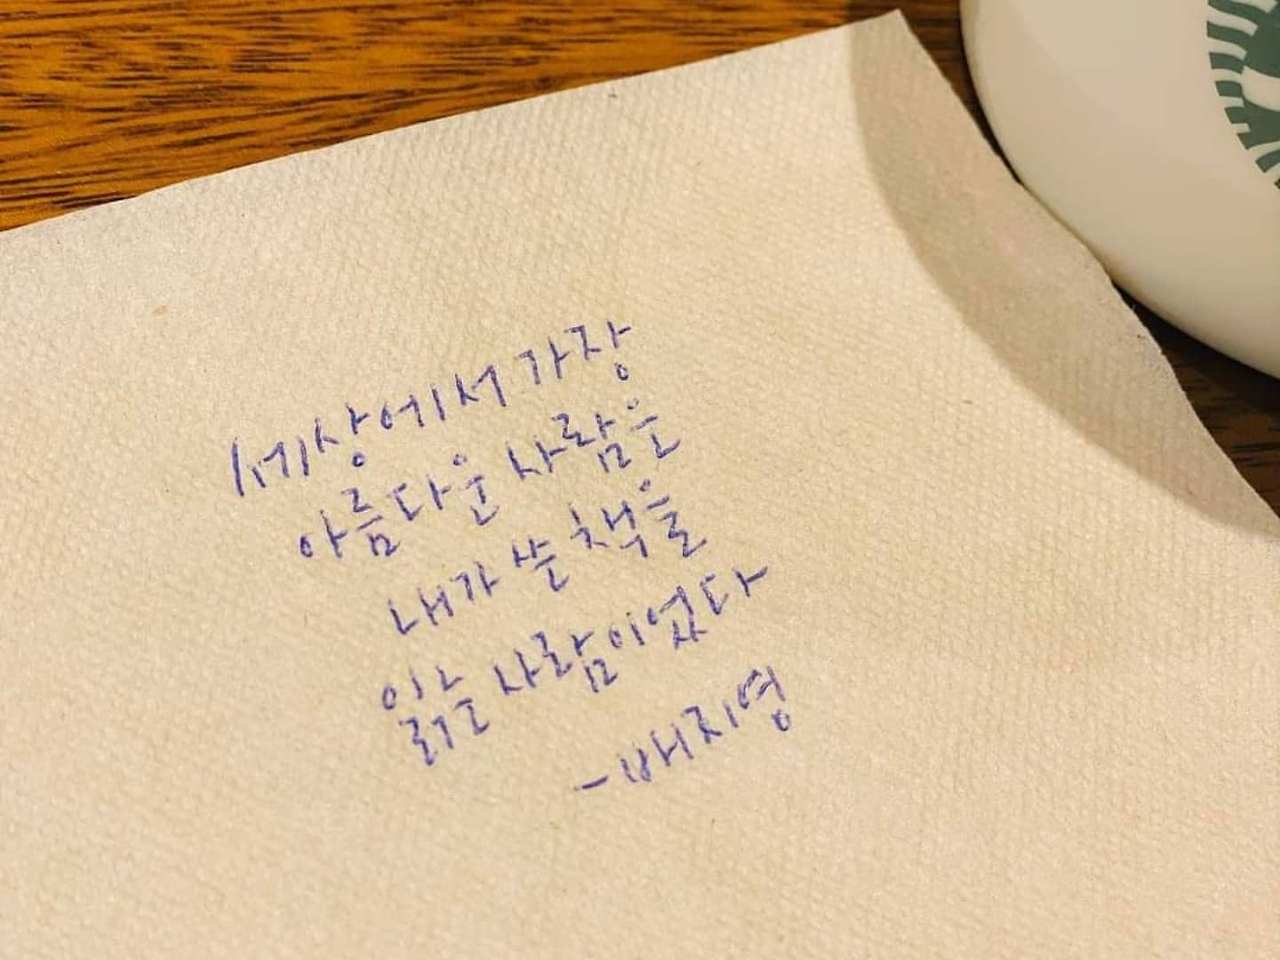 세상에서 가장
아름다운 사람은
내가 쓴 책을
읽은 사람이었다
- 배지영